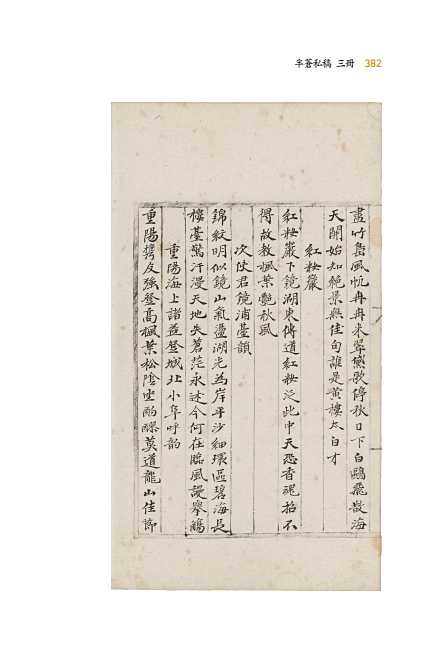 半蒼私稿 三冊 382
盡竹島風帆冉冉来翠黛歌停秋日下白鷗飛數海
天闊始知絶景無佳句誰是黃樓太白才
紅粧巖
紅粧巖下鏡湖東傳道紅粧泛此中天恐香魂招不
得故教楓葉艶秋風
次使君鏡浦臺韻
錦紋明似鏡山氣盪湖光為岸平沙細環區碧海長
樓臺驚汗漫天地失蒼茫永述今何在臨風謾擧觴
重陽海上諸益登城北小阜呼韵
重陽携友強登高楓葉松陰坐酌醪莫道龍山佳節